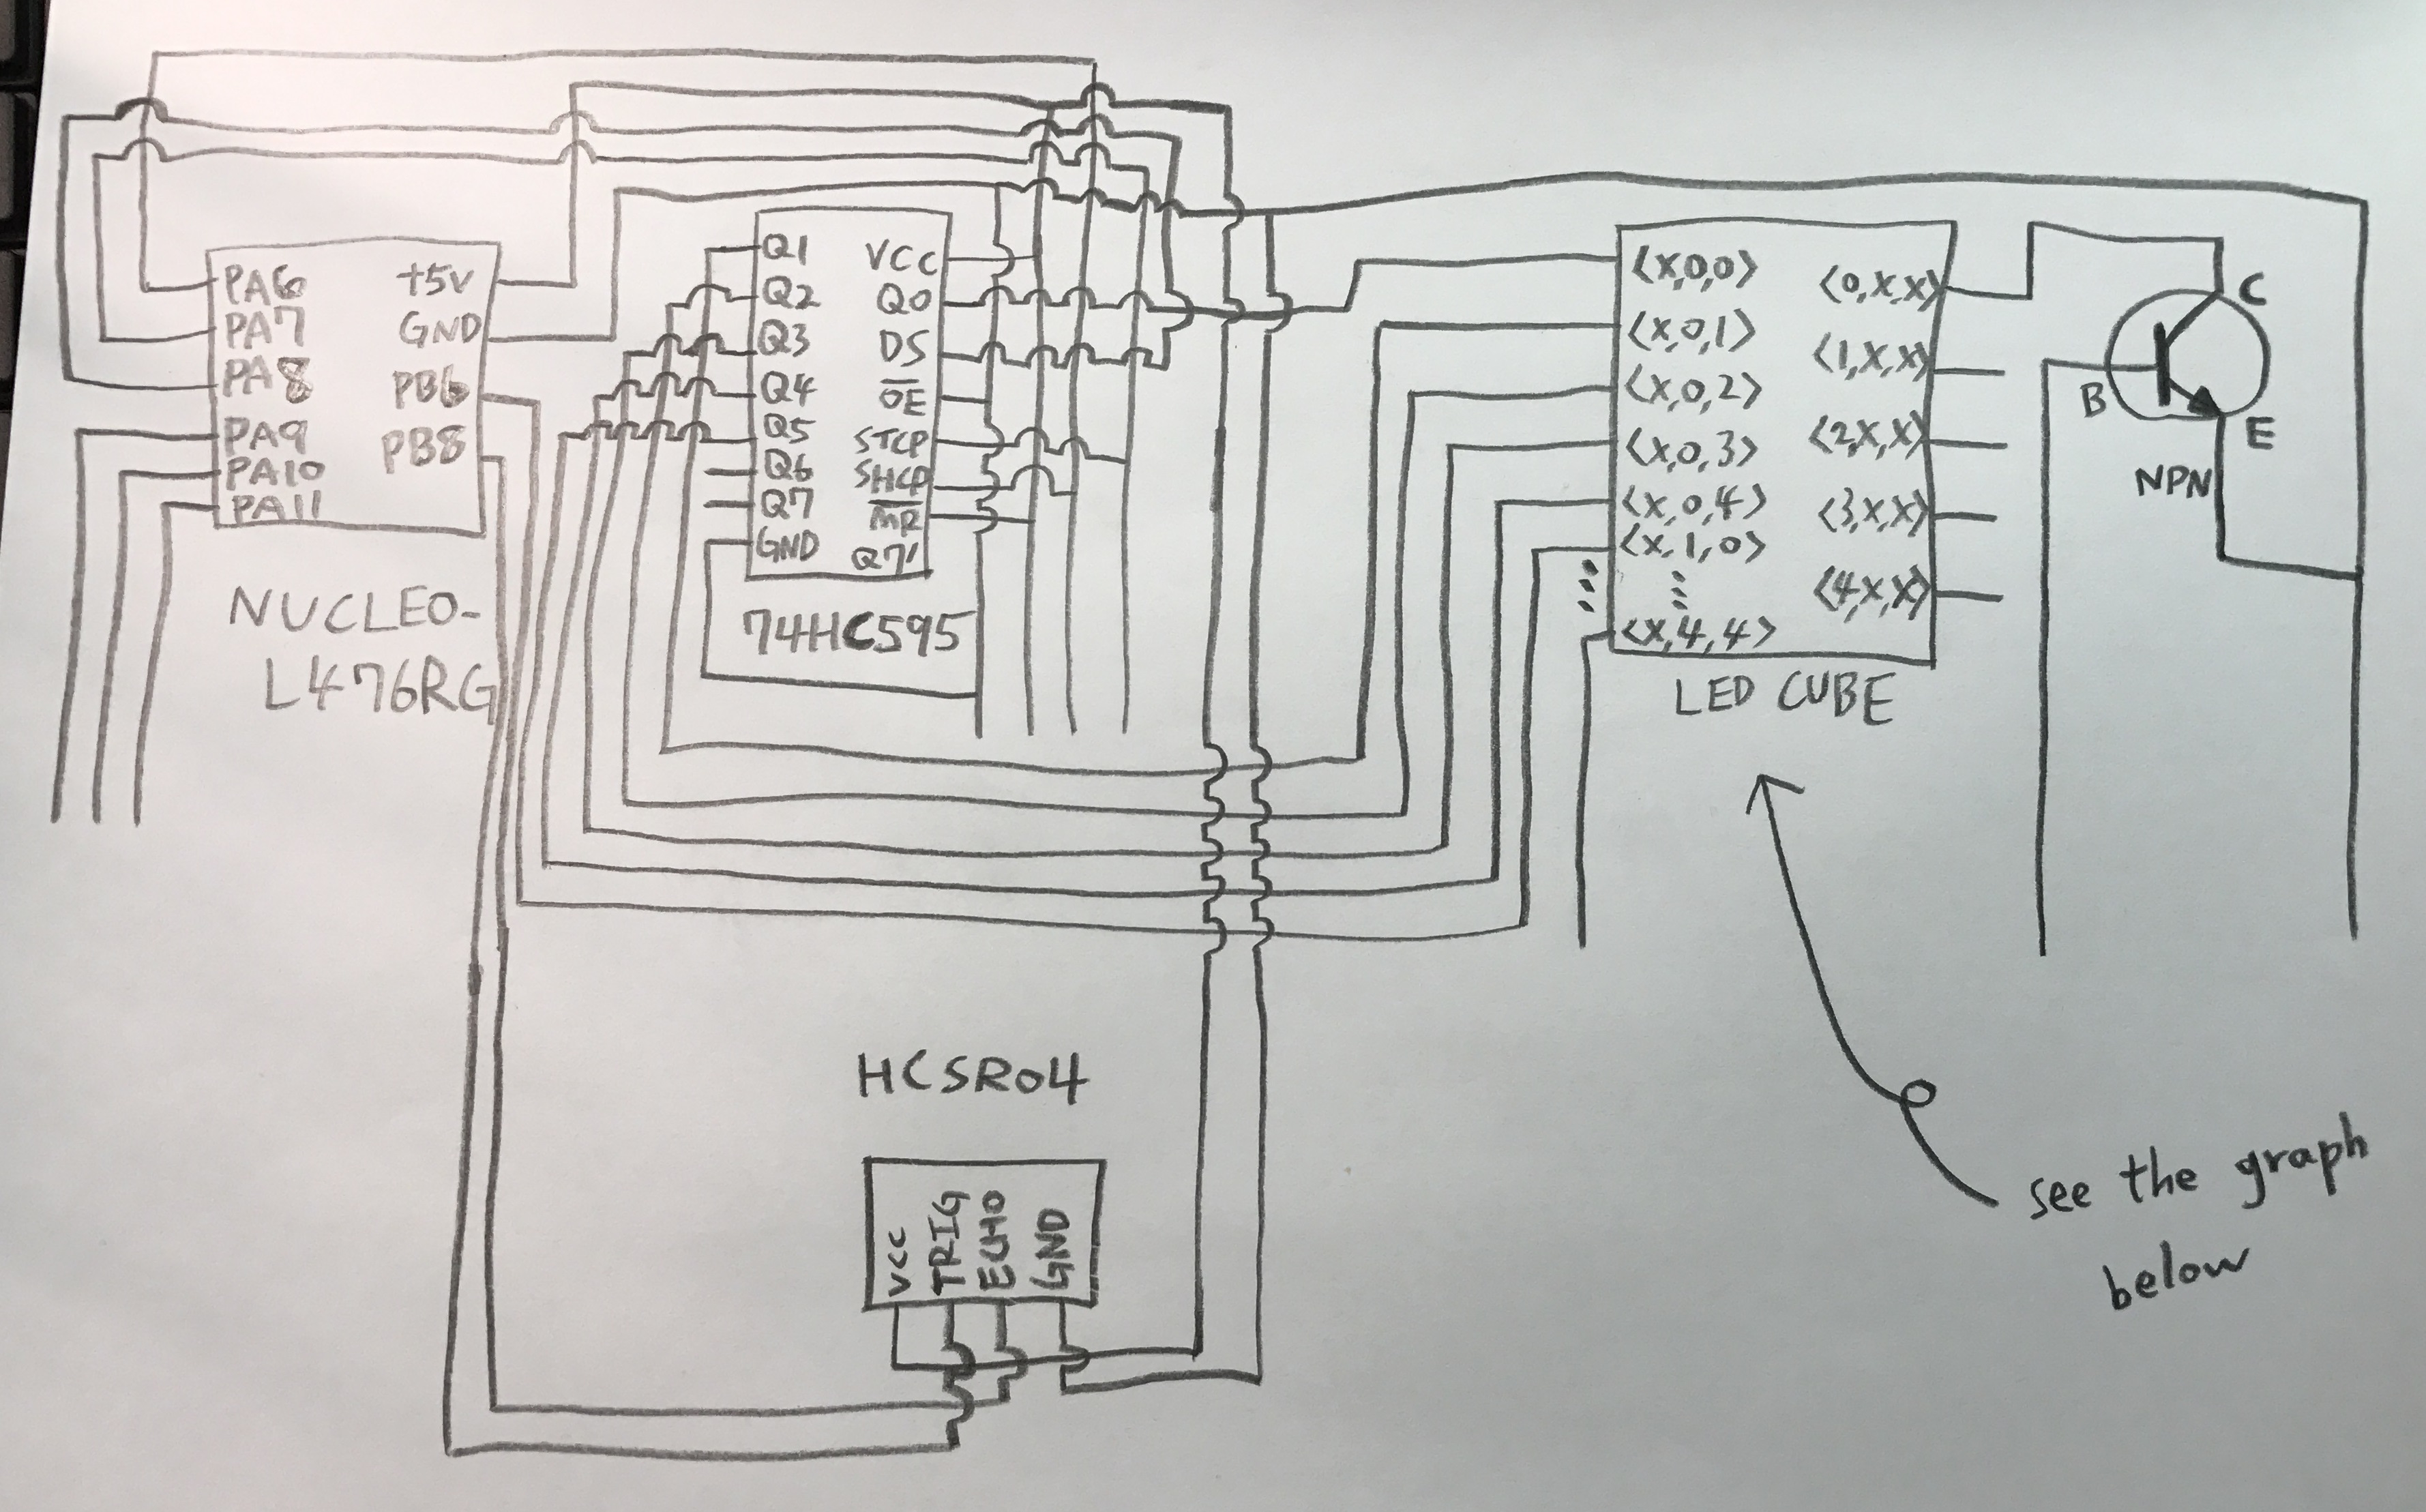 PA6
PA7
PA8
PA9
PA10
PA11
+5V
GND
PB6
PB8
NUCLEO-
L476RG
Q1
Q2
Q3
Q4
Q5
Q6
Q7
GND
VCC
Q0
DS
OE
STCP
SHCP
MR
Q7'
74HC595
<X,0,0>
<X,0,1>
<X,0,2>
<X,0,3>
<X,0,4>
<X,1,0>
<X,4,4>
<0,X,X>
<1,X,X>
<2,X,X>
<3,X,X>
<4,X,X>
LED CUBE
C
B
E
NPN
HCSR04
VCC
TRIG
ECHO
GND
see the graph
below